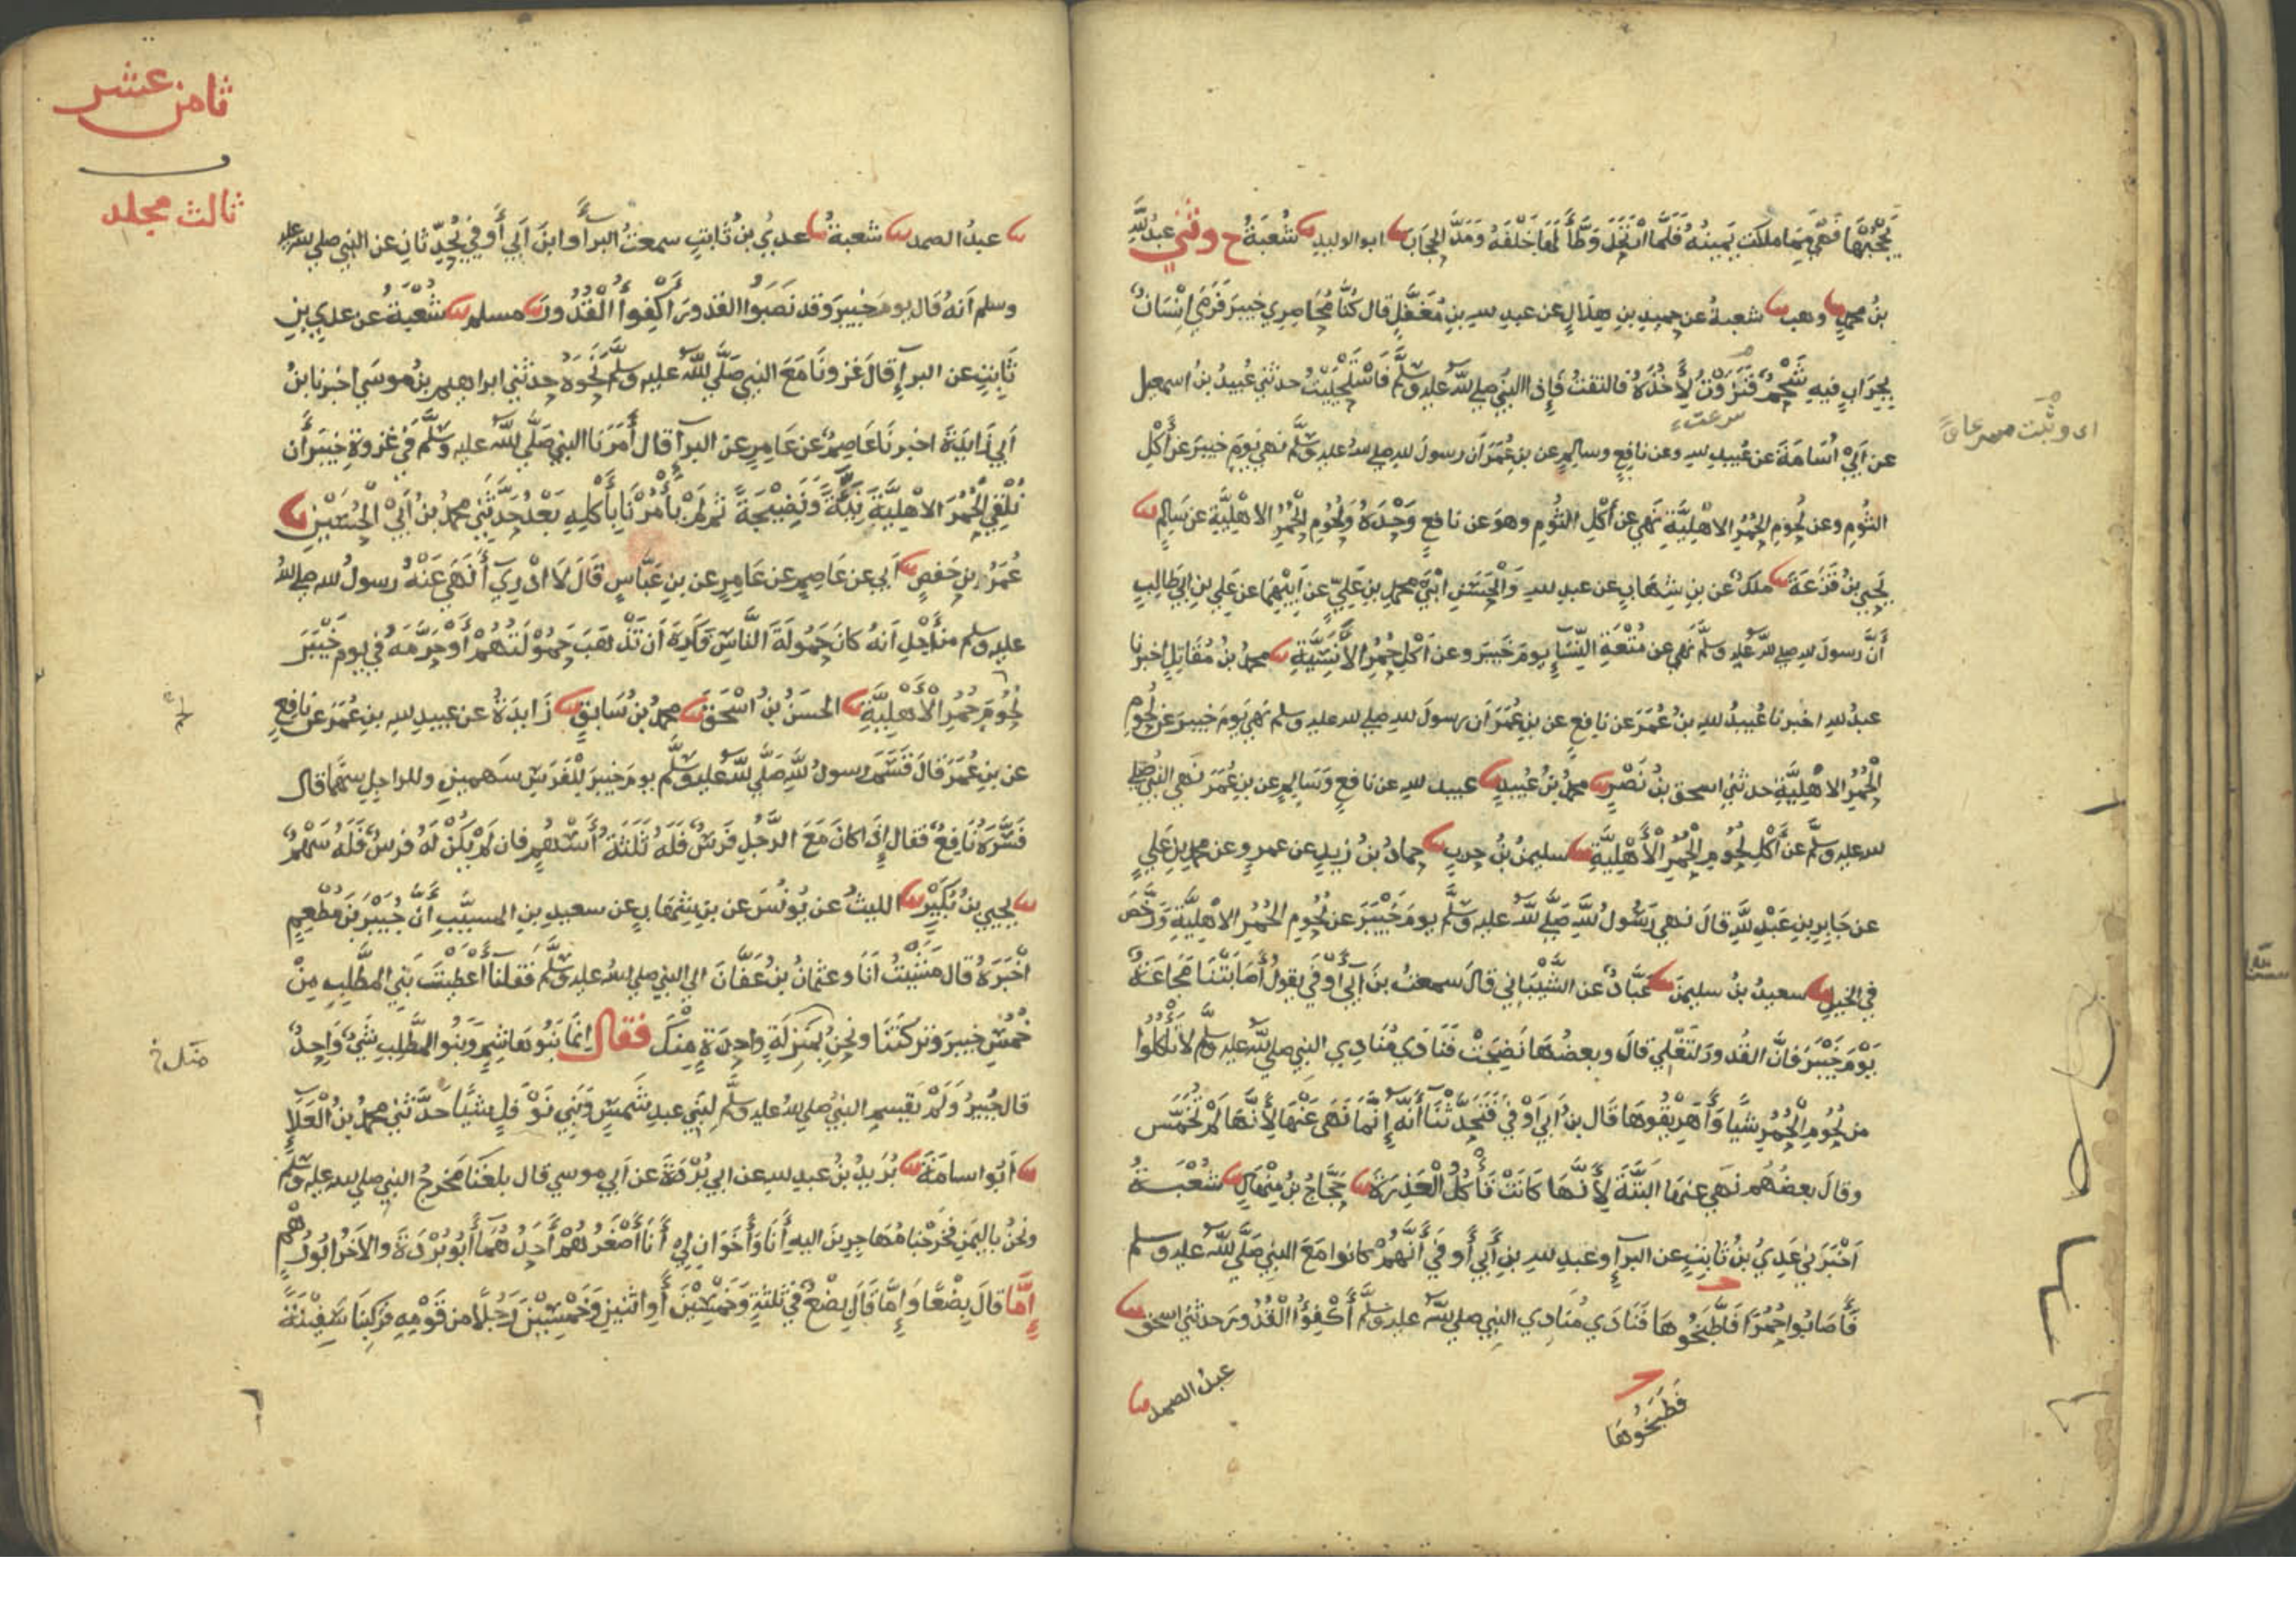 يَحْجُبْهَا فَهْيَ مِمَّا ملكت يَمِينُهُ فَلَمَّا ارْتَحَلَ وَطَّأَ لَهَا خَلْفَهُ وَمَدَّ الحِجَابَ نا ابو الوليدِ نا شُعْبَةُ ح وثني عبدُ للَّهِ
بنُ محمدٍ نا وهب نا شعبةُ عن حميدِ بنِ هِلَالٍ عن عبدِ للهِ بنِ مُغَفَّلٍ قال كُنَّا مُحَاصِرِي خيبرَ فَرَمَى إِنْسَانٌ
بِجِرَابٍ فيهِ شَحْمٌ فَنَزَوْتُ لِأَخُذَهُ فالتفتُ فَإِذا النبيُّ صلى للهُ عليه وسلَّم فَاسْتَحْيَيْتُ حدثني عُبيدُ بنُ اسمعيل
اى وثبت مسرعا
سرعت
عن أَبِيْ أُسَامَةَ عن عُبيدِ للهِ وعن نافعٍ وسالمٍ عن بنِ عُمَرَ أن رسولَ للهِ صلى للهُ عليه وسلَّم نهى يَومَ خيبرَ عن أَكْلِ
الثُومِ وعن لُحُومِ الحُمُرِ الاهْلِيَّةِ نهى عن أَكْلِ الثُومِ وهوَ عن نافعٍ وَحْدَهُ وَلُحُومِ الحُمُرِ الاهْلِيَّةِ عن سَالمٍ نا
يحيى بنُ قَزَعَةَ نا ملكٌ عن بنِ شِهَابٍ عن عبدِ للهِ وَالْحَسَنِ ابْنَيْ محمدِ بنِ عَلِيٍّ عن أَبِيْهِمَا عن عَلِي بنِ ابي طَالِبٍ
أَنَّ رسولَ للهِ صلى للهُ عليه وسلَّم نهى عن مُتْعَةِ النِّسَآءِ يومَ خَيبرَ وعن أَكْلِ حُمُرِ الأَنَسِيَّةِ نا محمدُ بنُ مُقَاتِلٍ اخبرنا
عبدُ للهِ اخبرنا عُبيدُ للهِ بنُ عُمَرَ عن نافعٍ عن بنِ عُمَرَ أن رسولَ للهِ صلى لله عليه وسلم نهى يَومَ خيبرَ عن لُحُومِ
الْحُمُرِ الاهْلِيَّةِ حدثني اسحق بنُ نَصْرٍ نا محمدُ بنُ عُبيدٍ نا عبيد للهِ عن نافعٍ وَسَالِمٍ عن بنِ عُمَرَ نهى النبيُّ صلى
لله عليه وسلَّم عن أَكْلِ لُحُومِ الْحُمُرِ الْأَهْلِيَّةِ نا سليمنُ بنُ حربٍ نا حمادُ بنُ زيدٍ عن عمرٍو عن محمدِ بنِ عَلِيٍ
عن جَابِرِ بنِ عَبْدِ للَّهِ قالَ نهى رَسُولُ للَّهِ صَلَّى للَّهُ عليه وسلَّم يومَ خَيْبَرَ عن لُحُومِ الحُمُرِ الاهْلِيَّةِ وَرَخَّصَ
في الخيلِ نا سعيدُ بنُ سليمنَ نا عَبَّادٌ عن الشَّيْبَانِي قالَ سمعتُ بنَ أَبِي أَوْفَى يقولُ أَصَابَتْنَا مَجَاعَةٌ
يَوْمَ خَيْبَرَ فَإِنَّ القُدُورَ لَتَغْلِي قالَ وبعضُهَا نَضِجَتْ فَنَادَى مُنَادِي النبيِ صلى للَّهُ عليه وسلَّم لَا تَأْكُلُوا
من لُحُومِ الْحُمُرِ شَيْأً وَأَهْرِيْقُوهَا قَال بنُ أَبِي أَوْفَى فَتَحَدَّثْنَا أَنَّهُ إِنَّمَا نَهَى عَنْهَا لِأَنَّهَا لَمْ تُخَمَّسْ
وقالَ بعضُهُم نَهَى عنها البَتَّةَ لِأَنَّهَا كَانَتْ تَأْكُلُ الْعَذِرَةَ نا حَجَّاجُ بنُ مِنْهَالٍ نا شُعْبَةُ
اَخْبَرَنِي عَدِيُ بنُ ثَابِتٍ عن البرآءِ وعبدِ للهِ بنِ أَبِي أَوفَى أَنَّهُمْ كانوا مَعَ النبيِ صَلَّى للَّهُ عليه وسلم
فَأَصَابُوا حُمُرًا فَاطَّبَخُوهَا فَنَادَى مُنَادِي النبي صلى للَّهُ عليه وسلَّم أَكْفِؤُا الْقُدُورَ حدثني اسحق نا
فَطَبَخُوهَا
عبدُ الصمد نا
ثامن عشر
ثالث مجلد
نا عبدُ الصمد نا شعبةُ نا عديُ بنُ ثَابتٍ سمعتُ البرآءَ وابنَ أَبي أَوفى يُحَدِّثَانِ عن النبي صلى لله عليه
وسلم أنهُ قَال يومَ خيبرَ وقد نَصَبُوا القدورَ أَكْفِؤُا الْقُدُورَ نا مسلم نا شُعْبَةُ عن عدي بنِ
ثَابِتٍ عن البرآءِ قالَ غَزَونَا مَعَ النبيِ صَلَّى للَّهُ عليه وسلَّم نَحْوَهُ حدثني ابراهيمُ بنُ موسى اخبرنا ابنُ
أبي زَايِدَةَ اخبرنَا عَاصِمٌ عن عَامِرٍ عن البرآءِ قال أَمَرَنَا النبيُ صَلَّى للَّهُ عليه وسلَّم في غزوةِ خيبرَ أَن
نُلْقِيَ الْحُمُرَ الاهْلِيَّةَ نِيْئَةً وَنَضِيْجَةً ثم لَمْ يَأْمُرْنَا بِأَكْلِهِ بَعْدُ حَدَّثَنِي محمدُ بنُ أَبِيْ الْحُسَيْنِ نا
عُمَرُ بنِ حَفصٍ نا أَبي عن عَاصِمٍ عن عَامِرٍ عن بنِ عَبَّاسٍ قَالَ لَا ادْرِي أَنَهَى عَنْهُ رسولُ لله صلى للهُ
عليه وسلم من أَجْلِ أَنهُ كانَ حَمُولَةَ النَّاسِ فَكَرِهَ أَن تَذْهَبَ حَمُوْلَتُهُمْ أَوْ حَرَّمَهُ في يومِ خَيْبَرَ
لُحُومَ حُمُرِ الْأَهْلِيَّةِ نا الحَسَنُ بنُ اسْحَقَ نا محمدُ بنُ سَابِقٍ نا زَايِدَةُ عن عبيدِ للهِ بنِ عُمَرَ عن نَافِعٍ
عن بنِ عُمَرَ قَالَ قَسَمَ رسولُ للَّهِ صَلَّى للَّهُ عليه وسلَّم يومَ خيبرَ لِلْفَرَسِ سَهمينِ وللراجلِ سهمًا قال
فَسَّرَهُ نَافِعٌ فقال إِذَا كانَ مَعَ الرَّجُلِ فَرَسٌ فَلَهُ ثَلَثَةُ أَسْهُمٍ فان لَمْ يَكُنْ لَهُ فرسٌ فَلَهُ سَهْمٌ
نا يحيى بنُ بُكَيْرٍ نا الليثُ عن يُونُسَ عن بنِ شهابٍ عن سعيدِ بنِ المسيَّبِ أَنَّ جُبَيْرَ بنَ مُطْعِمٍ
اَخْبَرَهُ قال مَشَيْتُ أَنَا وعثمانُ بنُ عَفَّانَ الى النبيِ صلى للهُ عليه وسلَّم فَقلنَآ أَعْطَيْتَ بَنِي المطَّلِبِ مِنْ
خُمُسِ خيبرَ وَتركتَنَا ونحنُ بِمَنزِلَةٍ واحِدَةٍ مِنْكَ فقال انما بَنُو هَاشِمٍ وَبَنُو المطَّلِبِ شَيءٌ وَاحِدٌ
قال جُبيرٌ وَلَمْ يَقسِمِ النبيُ صلى للهُ عليه وسلَّم لِبَنِي عبدِ شَمسٍ وَبَنِي نَوْفَلٍ شيًا حَدَّثني محمدُ بنُ الْعَلَاءِ
نا أَبُو اسامَةَ نا بُرَيدُ بنُ عبدِ للهِ عن ابي بُرْدَةَ عن أَبي موسى قال بلغَنَا مَخرَجُ النبيِ صلى لله عليه وسلَّم
ونحنُ باليمنِ فخرَجْنَا مُهَاجِرِينَ اليهِ أَنَا وَأَخَوَانِ لي أَنَا أَصْغَرُهُمْ أَحَدُهُمَا أَبُو بُرْدَةَ والآخَرُ ابُو رُهْمٍ
إِمَّا قالَ بِضْعًا وَإِمَّا قَالَ بِضْعٌ في ثَلثةٍ وَخَمْسِيْنَ أَو اثنينِ وَخَمْسِيْنَ رَجُلًا من قَوْمِهِ فركبنَا سَفِيْنَةً